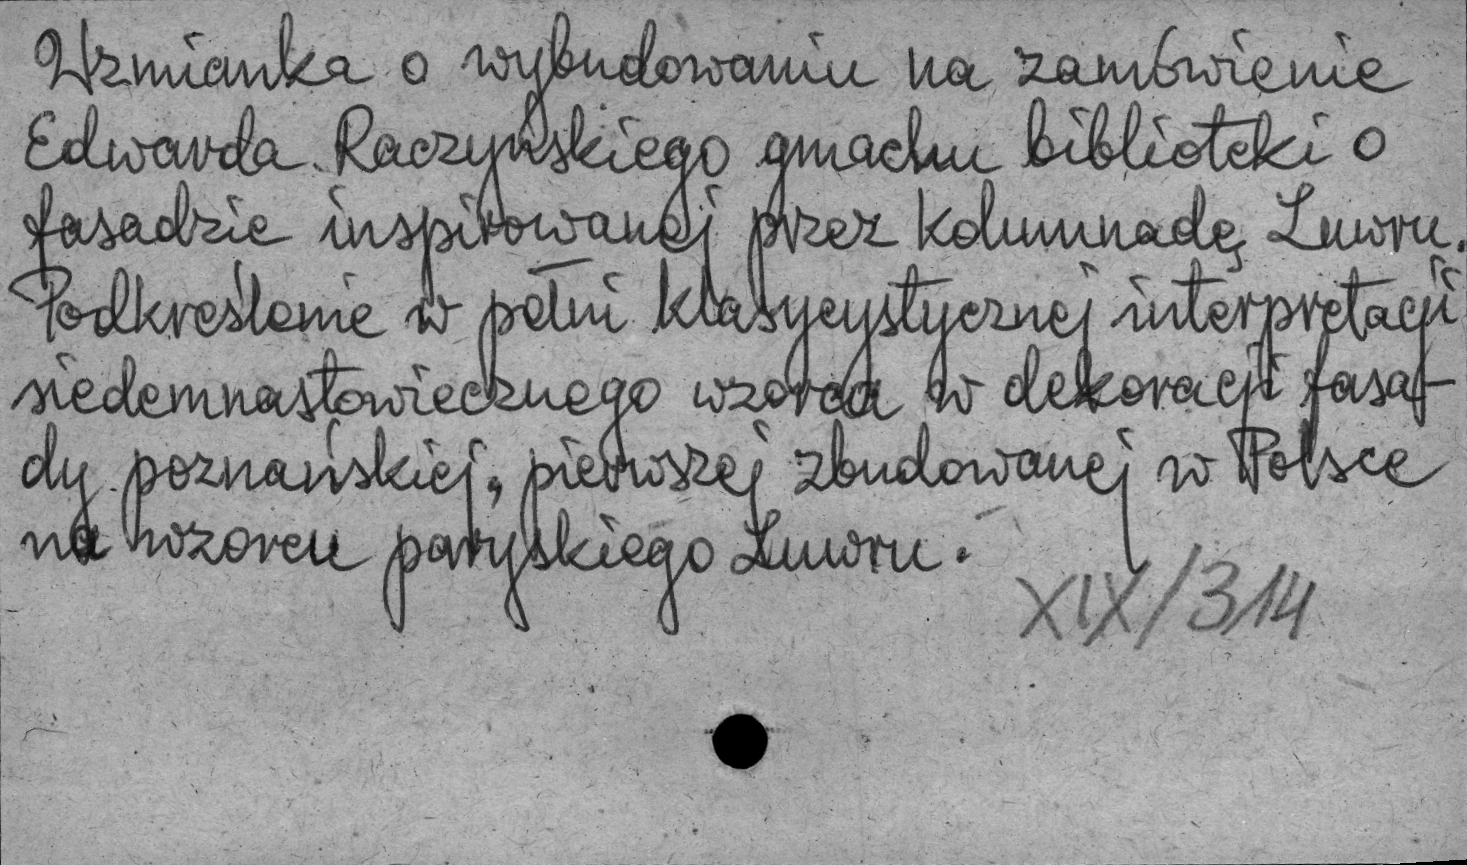 Wzmianka o wybudowaniu na zamówienie
Edwarda Raczyńskiego gmachu biblioteki o
fasadzie inspirowanej przez kolumnadę Luwru.
Podkreślenie w pełni klasycystycznej interpretacji
siedemnastowiecznego wzorca w dekoracji fasa-
dy poznańskiej, pierwszej zbudowanej w Polsce
na wzorcu paryskiego Luwru.
XIX/314